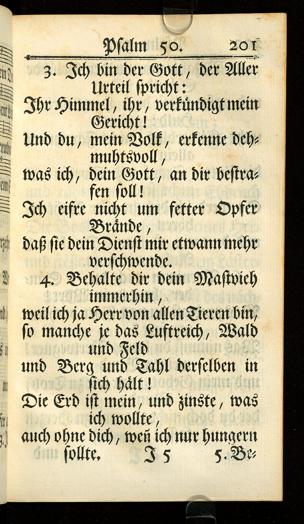 Psalm 50. 201
3. Ich bin der Gott, der Aller
Urteil spricht:
Ihr Himmel, ihr, verkündigt mein
Gericht!
Und du, mein Volk, erkenne deh-
muhtsvoll,
was ich, dein Gott, an dir bestra-
fen soll!
Ich eifre nicht um fetter Opfer
Brände,
daß sie dein Dienst mir etwann mehr
verschwende.
4. Behalte dir dein Mastvieh
immerhin,
weil ich ja Herr von allen Tieren bin,
so manche je das Luftreich, Wald
und Feld
und Berg und Tahl derselben in
sich hält!
Die Erd ist mein, und zinste, was
ich wollte,
auch ohne dich, weñ ich nur hungern
sollte. J 5 5. Be-